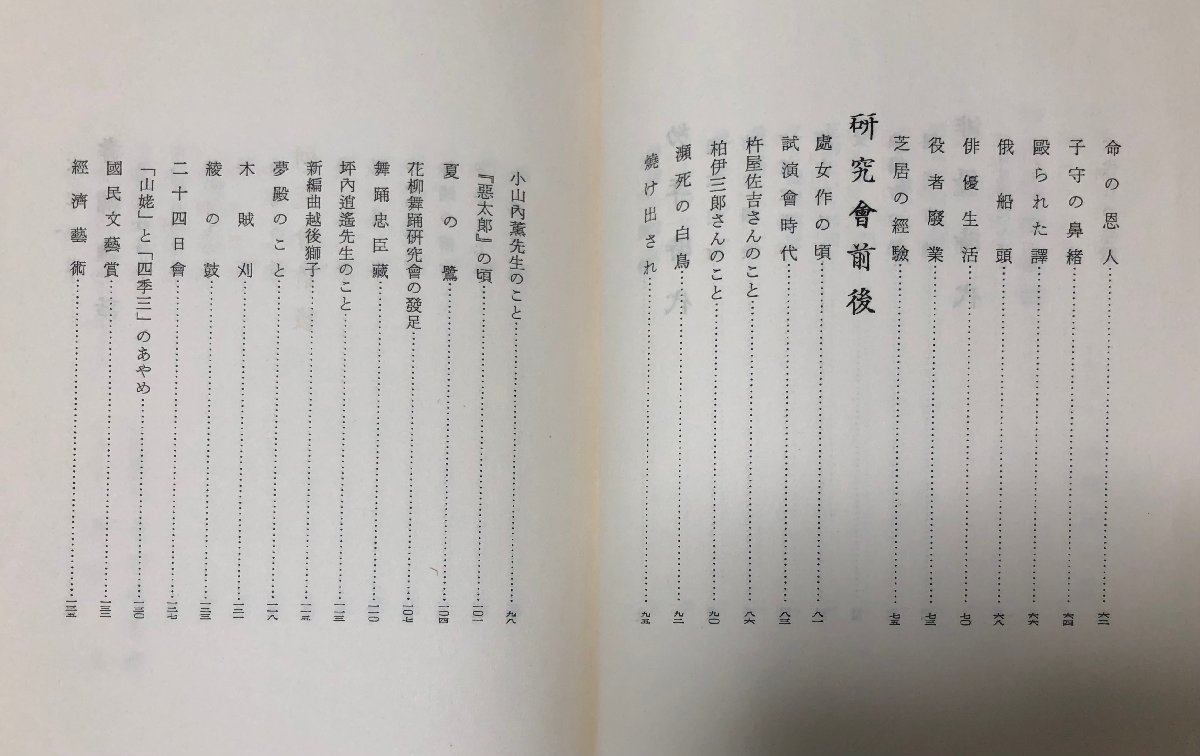 命の恩人…………六二
子守の鼻緒…………六四
毆られた譯…………六六
俄船頭…………六八
俳優生活…………七〇
役者廢業…………七三
芝居の經驗…………七五
研究會前後
處女作の頃…………八一
試演會時代…………八三
杵屋佐吉さんのこと…………八六
柏伊三郎さんのこと…………九〇
瀕死の白鳥…………九二
燒け出され…………九五
小山內薰先生のこと…………九八
『惡太郎』の頃…………一〇一
夏の鷺…………一〇四
花柳舞踊研究會の發足…………一〇七
舞踊忠臣藏…………一一〇
坪內逍遙先生のこと…………一一三
新編曲越後獅子…………一一五
夢殿のこと…………一一八
木賊刈…………一二一
綾の鼓…………一二三
二十四日會…………一二七
「山姥」と「四季三」のあやめ…………一三〇
國民文藝賞…………一三三
經濟藝術…………一三五